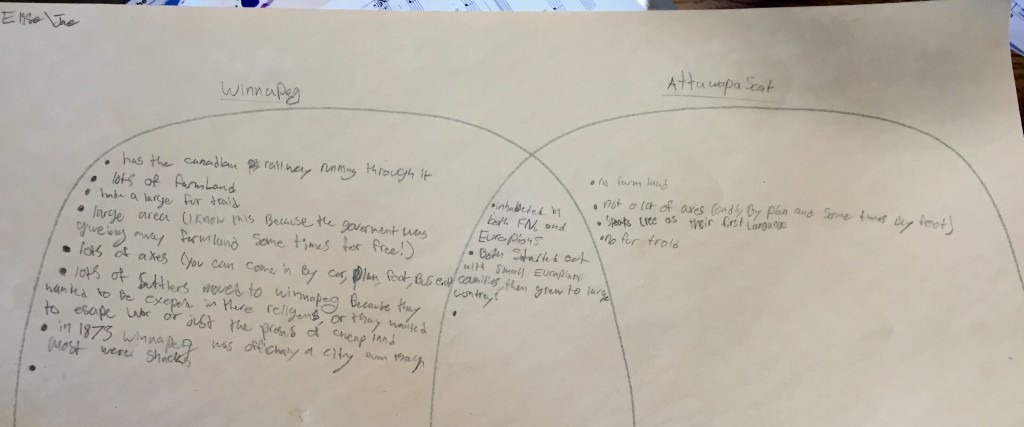 Elise\Jae
Winnapeg
• has the canadian railway running through it
• lots of farmland
• have a large fur traid
• large area (I know this Because the goverment was
giveing away farmland some times for free!)
• lots of axes (you can come in By car, plan, foot, Bus
• lots of settlers moved to winnapeg Because they
wanted to be in there religens, or thay wanted
to esape war or just the of cheap land
• in 1873 winnapeg was a city
most were shacks
•
• in
both FN, and
Europians
• Both Started out
with small Europians
then grew to large
•
Attawapascat
• no farm land
• not a lot of axes (By plan and some times By foot)
• Speak cree as their first Language
• no fur traid